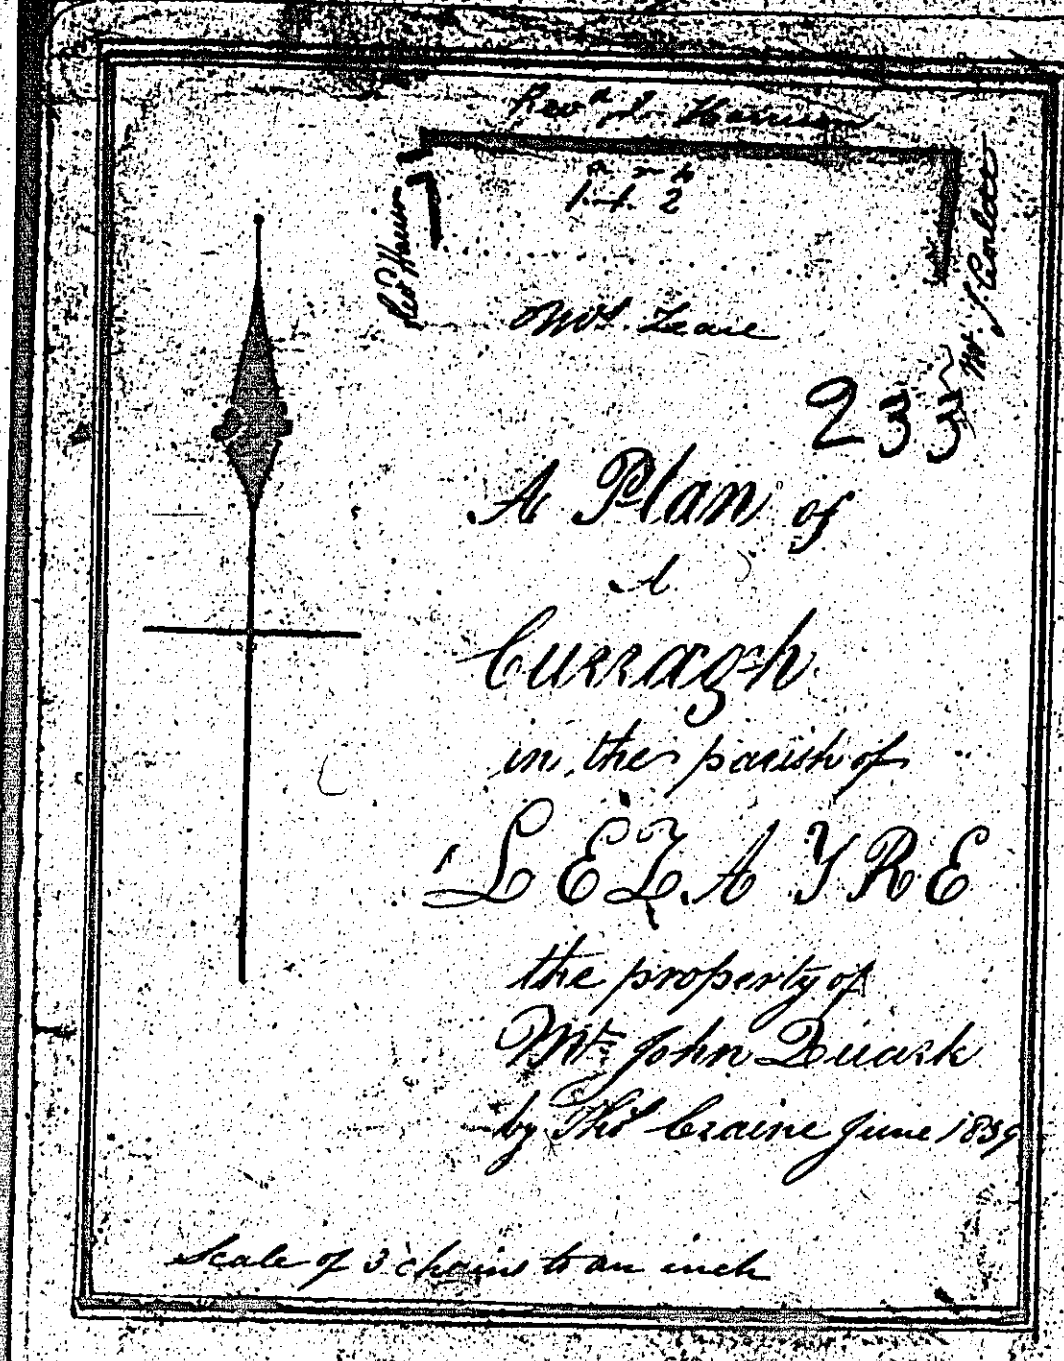 Revd J. Harrison
a r p
1. 1. 2
Revd Harrison
Mr. J. Corlett
Mrs. Teare
233
A Plan of
A
Curragh
in the parish of
LEZAYRE
the property of
Mr. John Quark
by Thos Craine June 1839
Scale of 3 chains to an inch